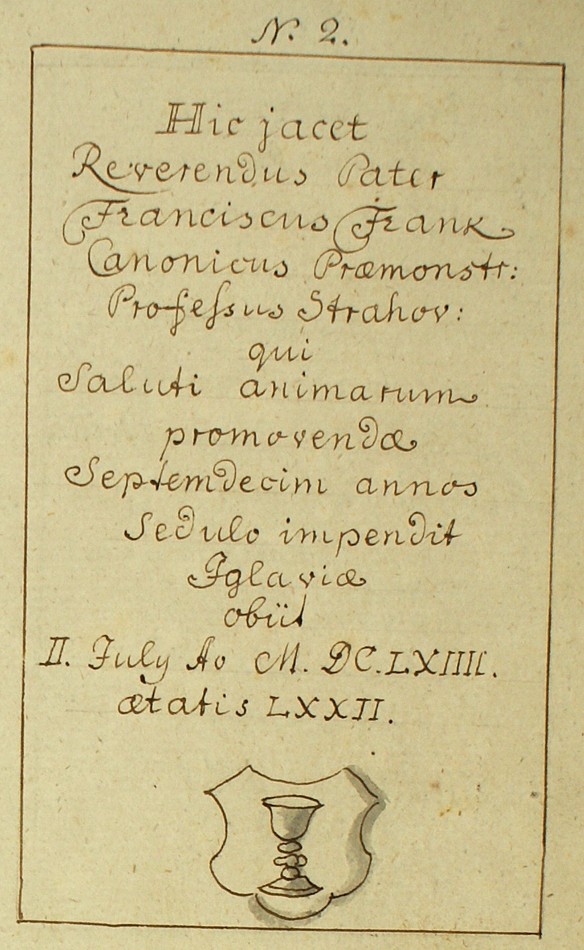 N. 2.
Hic jacet
Reverendus Pater
Franciscus Frank
Canonicus Præmonstr:
Professus Strahov:
qui
Saluti animarum
promovendæ
Septemdecim annos
Sedulo impendit
Iglaviæ
obiit
II. July Ao M. DC. LXIIII.
ætatis LXXII.